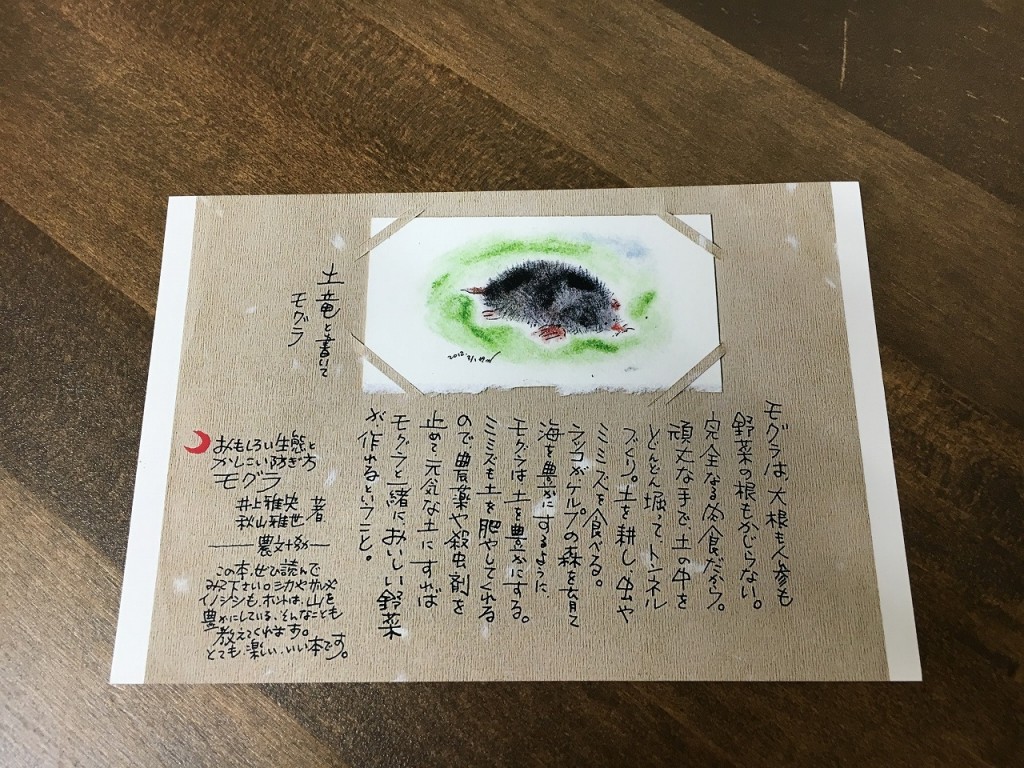 土竜と書いて
モグラ
2012.2/1
モグラは、大根も人参も
野菜の根もかじらない。
完全なる肉食だから。
頑丈な手で、土の中を
どんどん掘って、トンネル
づくり。土を耕し、虫や
ミミズを食べてる。
ラッコがケルプの森を育て
海を豊かにするように
モグラは、土を豊かにする。
ミミズも土を肥やしてくれる
ので、農薬や殺虫剤を
止めて、元気な土にすれば
モグラと一緒に、おいしい野菜
が作れるということ。
おもしろい生態と
かしこい防ぎ方
モグラ
井上雅央
秋山雅世 著
農文協
この本、ぜひ読んで
みて下さい。シカやサルや
イノシシも、ホントは、山を
豊かにしている、そんなことも
教えてくれます。
とても楽しい、いい本です。